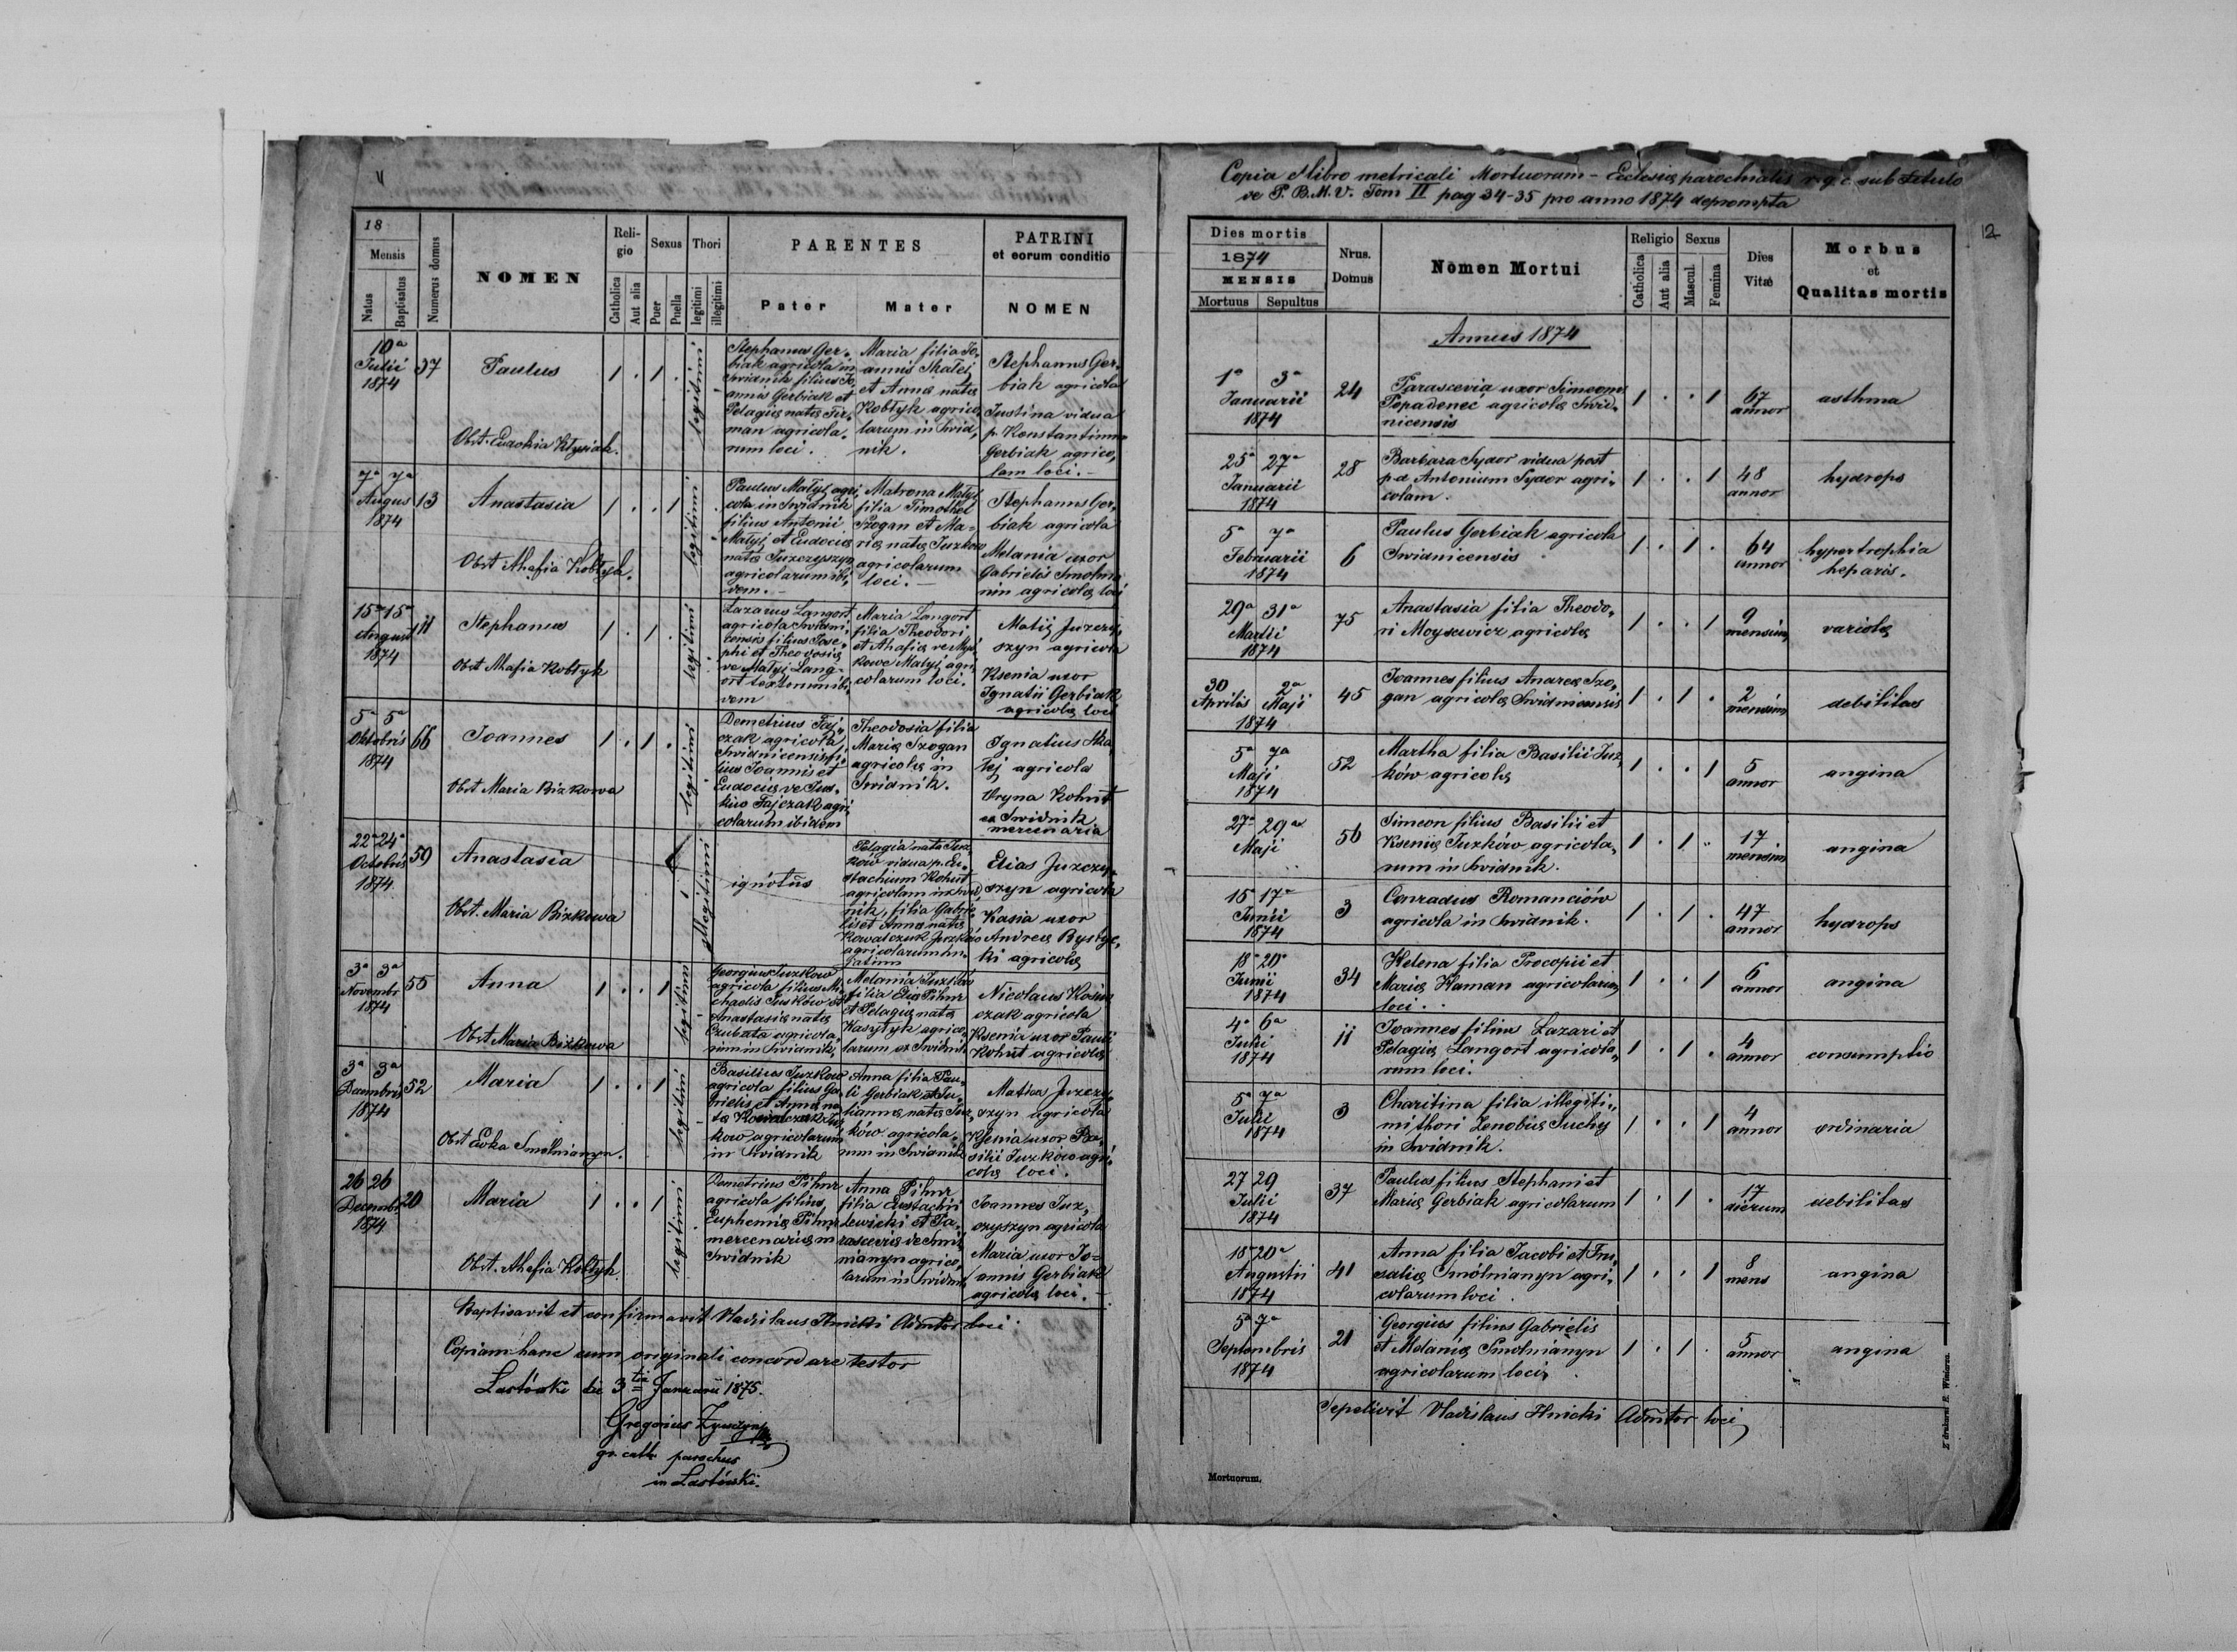 18
Mensis
Natus
Baptisatus
Numerus domus
NOMEN
Reli-
gio
Catholica
Aut alia
Sexus
Puer
Puella
Thori
legitimi
illegitimi
PARENTES
Pater
Mater
PATRINI
et eorum conditio
NOMEN
10a
Julii
1874
37
Paulus
Obst. Eudokia
1 . 1 .
legitimi
Stephanus Ger-
biak agricola in
Swidnik filius Jo,
annis Gerbiak et
Pelagiæ natæ
man agricola-
rum loci.
Maria filia Jo,
annis
et Annæ natæ
Kobłyk agrico,
larum in Swid,
nik.
Stephanus Ger-
biak agricola
Justina vidua
p. Konstantinum
Gerbiak agrico,
lam loci. -
7a 7a
Augus
1874
13
Anastasia
Obst Ahafia Kobłyk.
1 . . 1
legitimi
Paulus Matyj agri,
cola in Swidnik
filius Antonii
Matyj et Eudociæ
natæ Juzczyszyn
agricolarum ibi,
dem. -
Matrona Matyj
filia Timothei
Szogan et Ma-
riæ natæ Juzkow
agricolarum
loci. -
Stephanus Ger,
biak agricola
Melania uxor
Gabrielis
agricolæ loci
15a 15a
August
1874
11
Stephanus
Obst Ahafia Kobłyk
1 . 1 .
legitimi
Lazarus Langort
agricola Swidni,
censis filius Jose,
phi et Theodosiæ
de Matyj Lang-
ort
Maria Langort
filia Theodori
et Ahafiæ
Matyj agri,
colarum loci.
Juzczy,
szyn agricola
Ksenia uxor
Ignatii Gerbiak
agricolæ loci
5a 5a
Oktobris
1874
66
Joannes
Obst Maria Bizkowa
1 . 1 .
legitimi
Demetrius Faj,
czak agricola
Swidnicensis fi,
lius Joannis et
Eudociæ de Juz,
ków Fajczak agri,
colarum ibidem
Theodosia filia
Mariæ Szogan
agricolæ in
Swidnik.
Ignatius
agricola
Kohut
ex Swidnik
mercenaria
22a 24a
Octobris
1874
59
Anastasia
Obst. Maria Bizkowa
illegitimi
ignotus
Pelagia nata Juz,
kow vidua p. Eu,
stachium Kohut
agricolam in Swid,
nik, filia Gabrie,
lis et Annæ natæ
Kowalczuk Juzków
agricolarum
Elias Juzczy,
szyn agricola
Kasia uxor
Andreæ Bystryc,
ki agricolæ
3a 3a
Novembr
1874
55
Anna
Obst Maria Bizkowa
1 . . 1
legitimi
Georgius Juzkow
agricola filius Mi,
chaelis Juzków et
Anastasiæ natæ
agricola,
rum in Swidnik
Melania Juzków
filia Eliæ Pihur
et Pelagiæ natæ
agrico,
larum ex Swidnik
Nicolaus
agricola
Ksenia uxor Pauli
Kohut agricolæ
3a 3a
Decembris
1874
52
Maria
Obst Smolnianyn.
1 . . 1
legitimi
Basilius Juzkow
agricola filius Ga,
brielis et Annæ na,
tæ Kowalczuk Juz,
kow agricolarum
in Swidnik
Anna filia Pau,
li Gerbiak et Ju,
liannæ natæ Juz,
ków agricola,
rum in Swidnik
Matias Juzczy,
szyn agricola
Ksenia uxor Ba,
silii Juzkow agri,
colæ loci.
26 26
Decembr
1874
20
Maria
Obst. Ahafia Kobłyk
1 . . 1
legitimi
Demetrius Pihur
agricola filius
Euphemiæ Pihur
mercenariæ in
Swidnik
Anna Pihur
filia Eustachii
Lewicki et Pa,
rasceviæ de Smol,
nianyn agrico,
larum in Swidnik
Joannes Juz,
czyszyn agricola
Maria uxor Jo=
annis Gerbiak
agricolæ loci. -
Baptisavit et confirmavit Vladislaus Ilnicki Admtor loci
Copiam hanc cum originali concordare testor
Lastówki die 3tia Januarii 1875.
Gregorius
gr. cath. parochus
in Lastówki.
12
Copia e libro metricali Mortuorum - Ecclesiæ parochialis r. g. c. sub titulo
P. B. M. V. Tom II pag 34-35 pro anno 1874 deprompta
Dies mortis
1874
MENSIS
Mortuus
Sepultus
Nrus.
Domus
Nomen Mortui
Religio
Catholica
Aut alia
Sexus
Mascul.
Femina
Dies
Vitæ
Morbus
et
Qualitas mortis
Annus 1874
1a 3a
Januarii
1874
24
Parascevia uxor Simeonis
Popadeneć agricolæ Swid,
nicensis
1 . . 1
67
annor
asthma
25a 27a
Januarii
1874
28
Barbara Sydor vidua post
p d Antonium Sydor agri,
colam.
1 . . 1
48
annor
hydrops
5a 7a
Februarii
1874
6
Paulus Gerbiak agricola
Swidnicensis
1 . 1 .
64
annor
hypertrophia
heparis.
29a 31a
Martii
1874
75
Anastasia filia Theodo,
ri Moysewicz agricolæ
1 . . 1
9
mensium
variolæ
30 2a
Aprilis Maji
1874
45
Joannes filius Andreæ Szo,
gan agricolæ Swidnicensis
1 . 1 .
2
mensium
debilitas
5a 7a
Maji
1874
52
Martha filia Basilii Juz,
ków agricolæ
1 . . 1
5
annor
angina
27a 29a
Maji
56
Simeon filius Basilii et
Kseniæ Juzków agricola,
rum in Swidnik.
1 . 1 .
17
mensium
angina
15 17a
Junii
1874
3
Conradus Romanciów
agricola in Swidnik.
1 . 1 .
47
annor
hydrops
18a 20a
Junii
1874
34
Helena filia Procopii et
Mariæ Haman agricolarum
loci.
1 . . 1
6
annor
angina
4a 6a
Julii
1874
11
Joannes filius Lazari et
Pelagiæ Langort agricola,
rum loci.
1 . 1 .
4
annor
consumptio
5a 7a
Julii
1874
3
Charitina filia illegiti,,
mi thori Zenobiæ Suchyj
in Swidnik.
1 . . 1
4
annor
ordinaria
27 29
Julii
1874
37
Paulus filius Stephani et
Mariæ Gerbiak agricolarum
1 . 1 .
17
dierum
debilitas
18 20a
Augustii
1874
41
Anna filia Jacobi et
Smólnianyn agri,
colarum loci.
1 . . 1
8
mens
angina
5a 7a
Septembris
1874
21
Georgius filius Gabrielis
et Melaniæ Smolnianyn
agricolarum loci,
1 . 1 .
5
annor
angina
Sepelivit Vladislaus Ilnicki Admtor loci
Mortuorum.
Z drukarni E. Winiarza.